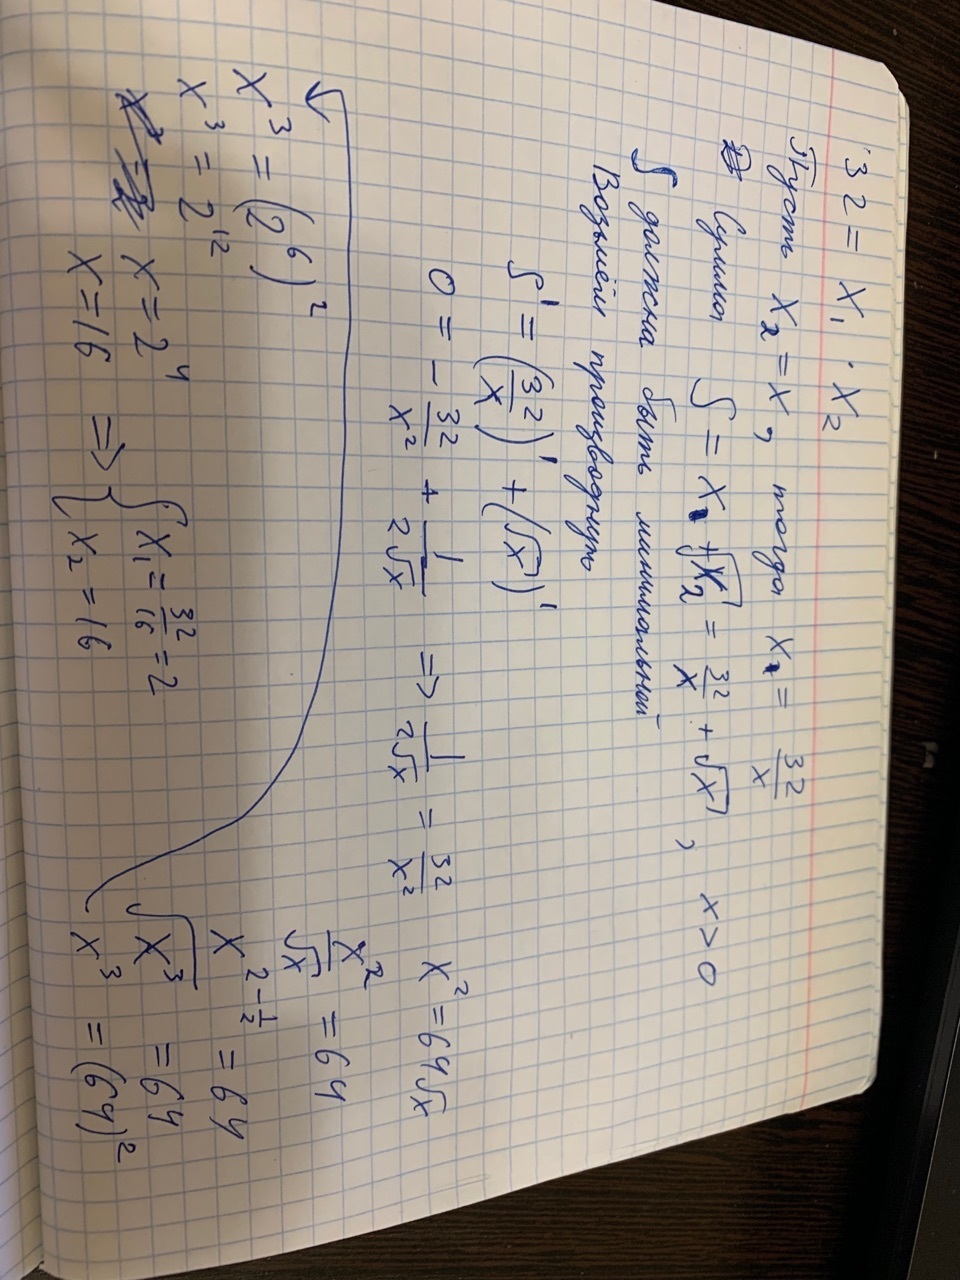 32 = x₁ · x₂
Пусть x₂ = x, тогда x₁ = 32/x
Сумма S = x₁ + √x₂ = 32/x + √x, x > 0
S должна быть минимальной
Возьмём производную
S' = (32/x)' + (√x)'
0 = - 32/x² + 1/2√x => 1/2√x = 32/x²
x² = 64√x
x²/√x = 64
x^(2-1/2) = 64
√x³ = 64
x³ = (64)²
x³ = (2⁶)²
x³ = 2¹²
x = 2⁴
x = 16 => { x₁ = 32/16 = 2
x₂ = 16